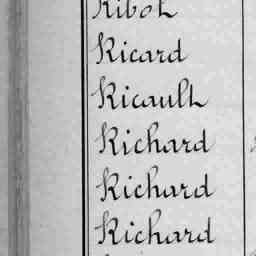 Ribot
Ricard
Ricault
Richard
Richard
Richard